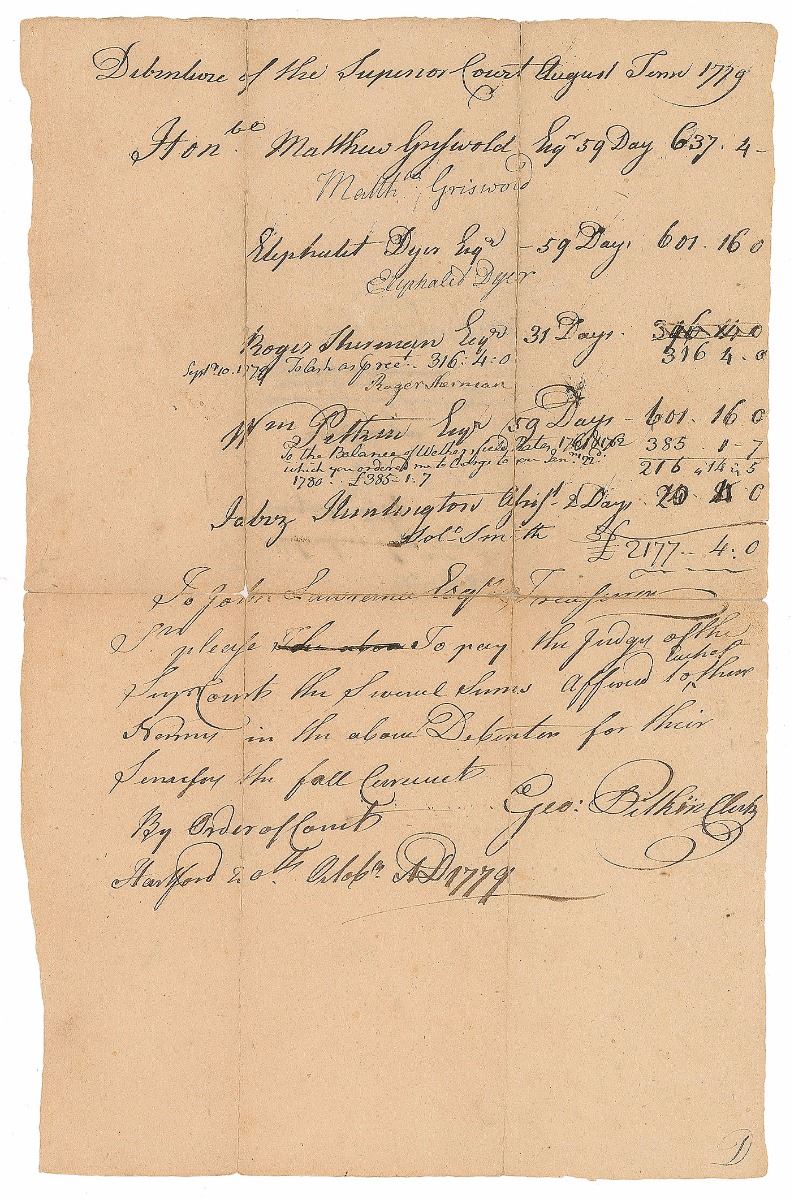 Debenture of the Superior Court August Term 1779
Honble Matthew Griswold Esqr 59 Day 637. 4 -
Matthw Griswold
Eliphalet Dyer Esqr - 59 Days 601. 16 0
Eliphalet Dyer
Roger Sherman Esqr 31 Days.
316 4. 0
Septr 10. 1779 To Cash as pr Rect. 316. 4: 0
Roger Sherman
Wm Pitkin Esqr 59 Days - 601. 16 0
To the Balance of Wethersfield Rates 1761 & 1762 385. 1 - 7
which you ordered me to Charge to you Janr 216 " 14 " 5
1780 .. £385 - 1. 7
Jabez Huntington 2 Days. 20 0
Solo Smith
£ 2177 - 4: 0
To John Lawrence Esqr Treasurer
Sr please the above To pay the Judges of the
Supr Court the Several Sums Affixed to each of their
Names in the above Debenture for their
Services the fall Circuit
By Order of Court Geo: Pitkin Clerk
Hartford 20th Octobr AD 1779
D